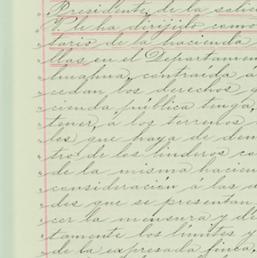 Presidente de la
V. le ha dirijido como
tario de la hacienda
llas en el Departamen
contraida a
cedan los derechos y
cienda pública tenga
tener, a los terrenos
los que haya de den
tro de los linderos co
de la misma hacien
consideración a las
des que se presentan
cer la mensura y de
tamente los límites y
de la expresada finca,